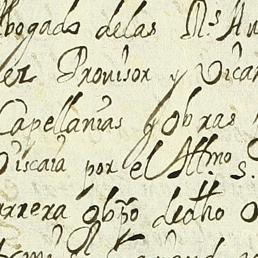 bogado delas R.s Au
er Provisor y Vica
Capellanias y obras
Viscaia por el Illmo S.
arrera obpo dedho O